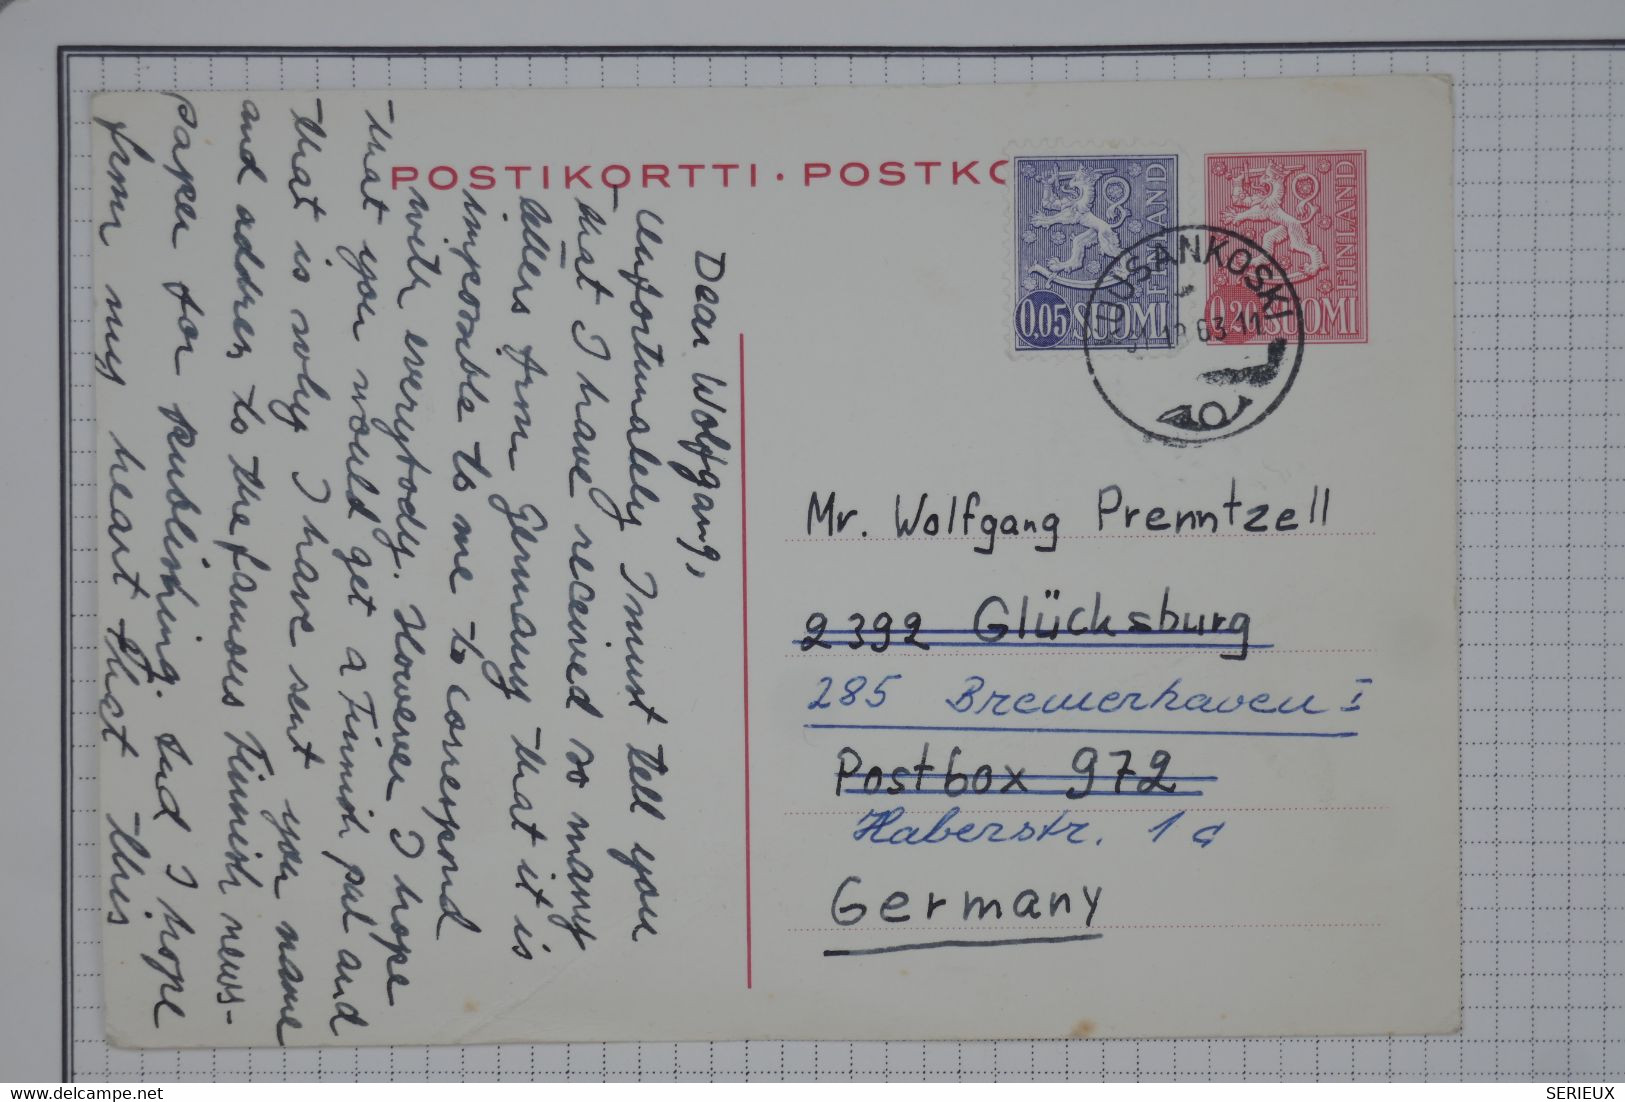 POSTIKORTTI · POSTKO
0.05 SUOMI
FINLAND
0.20 SUOMI
FINLAND
UUSANKOSKI
63-11
Dear Wolfgang,
Unfortunately I must tell you
that I have received so many
letters from Germany that it is
impossible to me to correspond
with everybody. However I hope
that you would get a Finnish pal and
that is why I have sent you name
and address to the famous Finnish news-
paper for publishing. And I hope
from my heart that this
Mr. Wolfgang Prenntzell
2392 Glücksburg
285 Bremerhaven I
Postbox 972
Haberstr. 1a
Germany
delcampe.net
SERIEUX